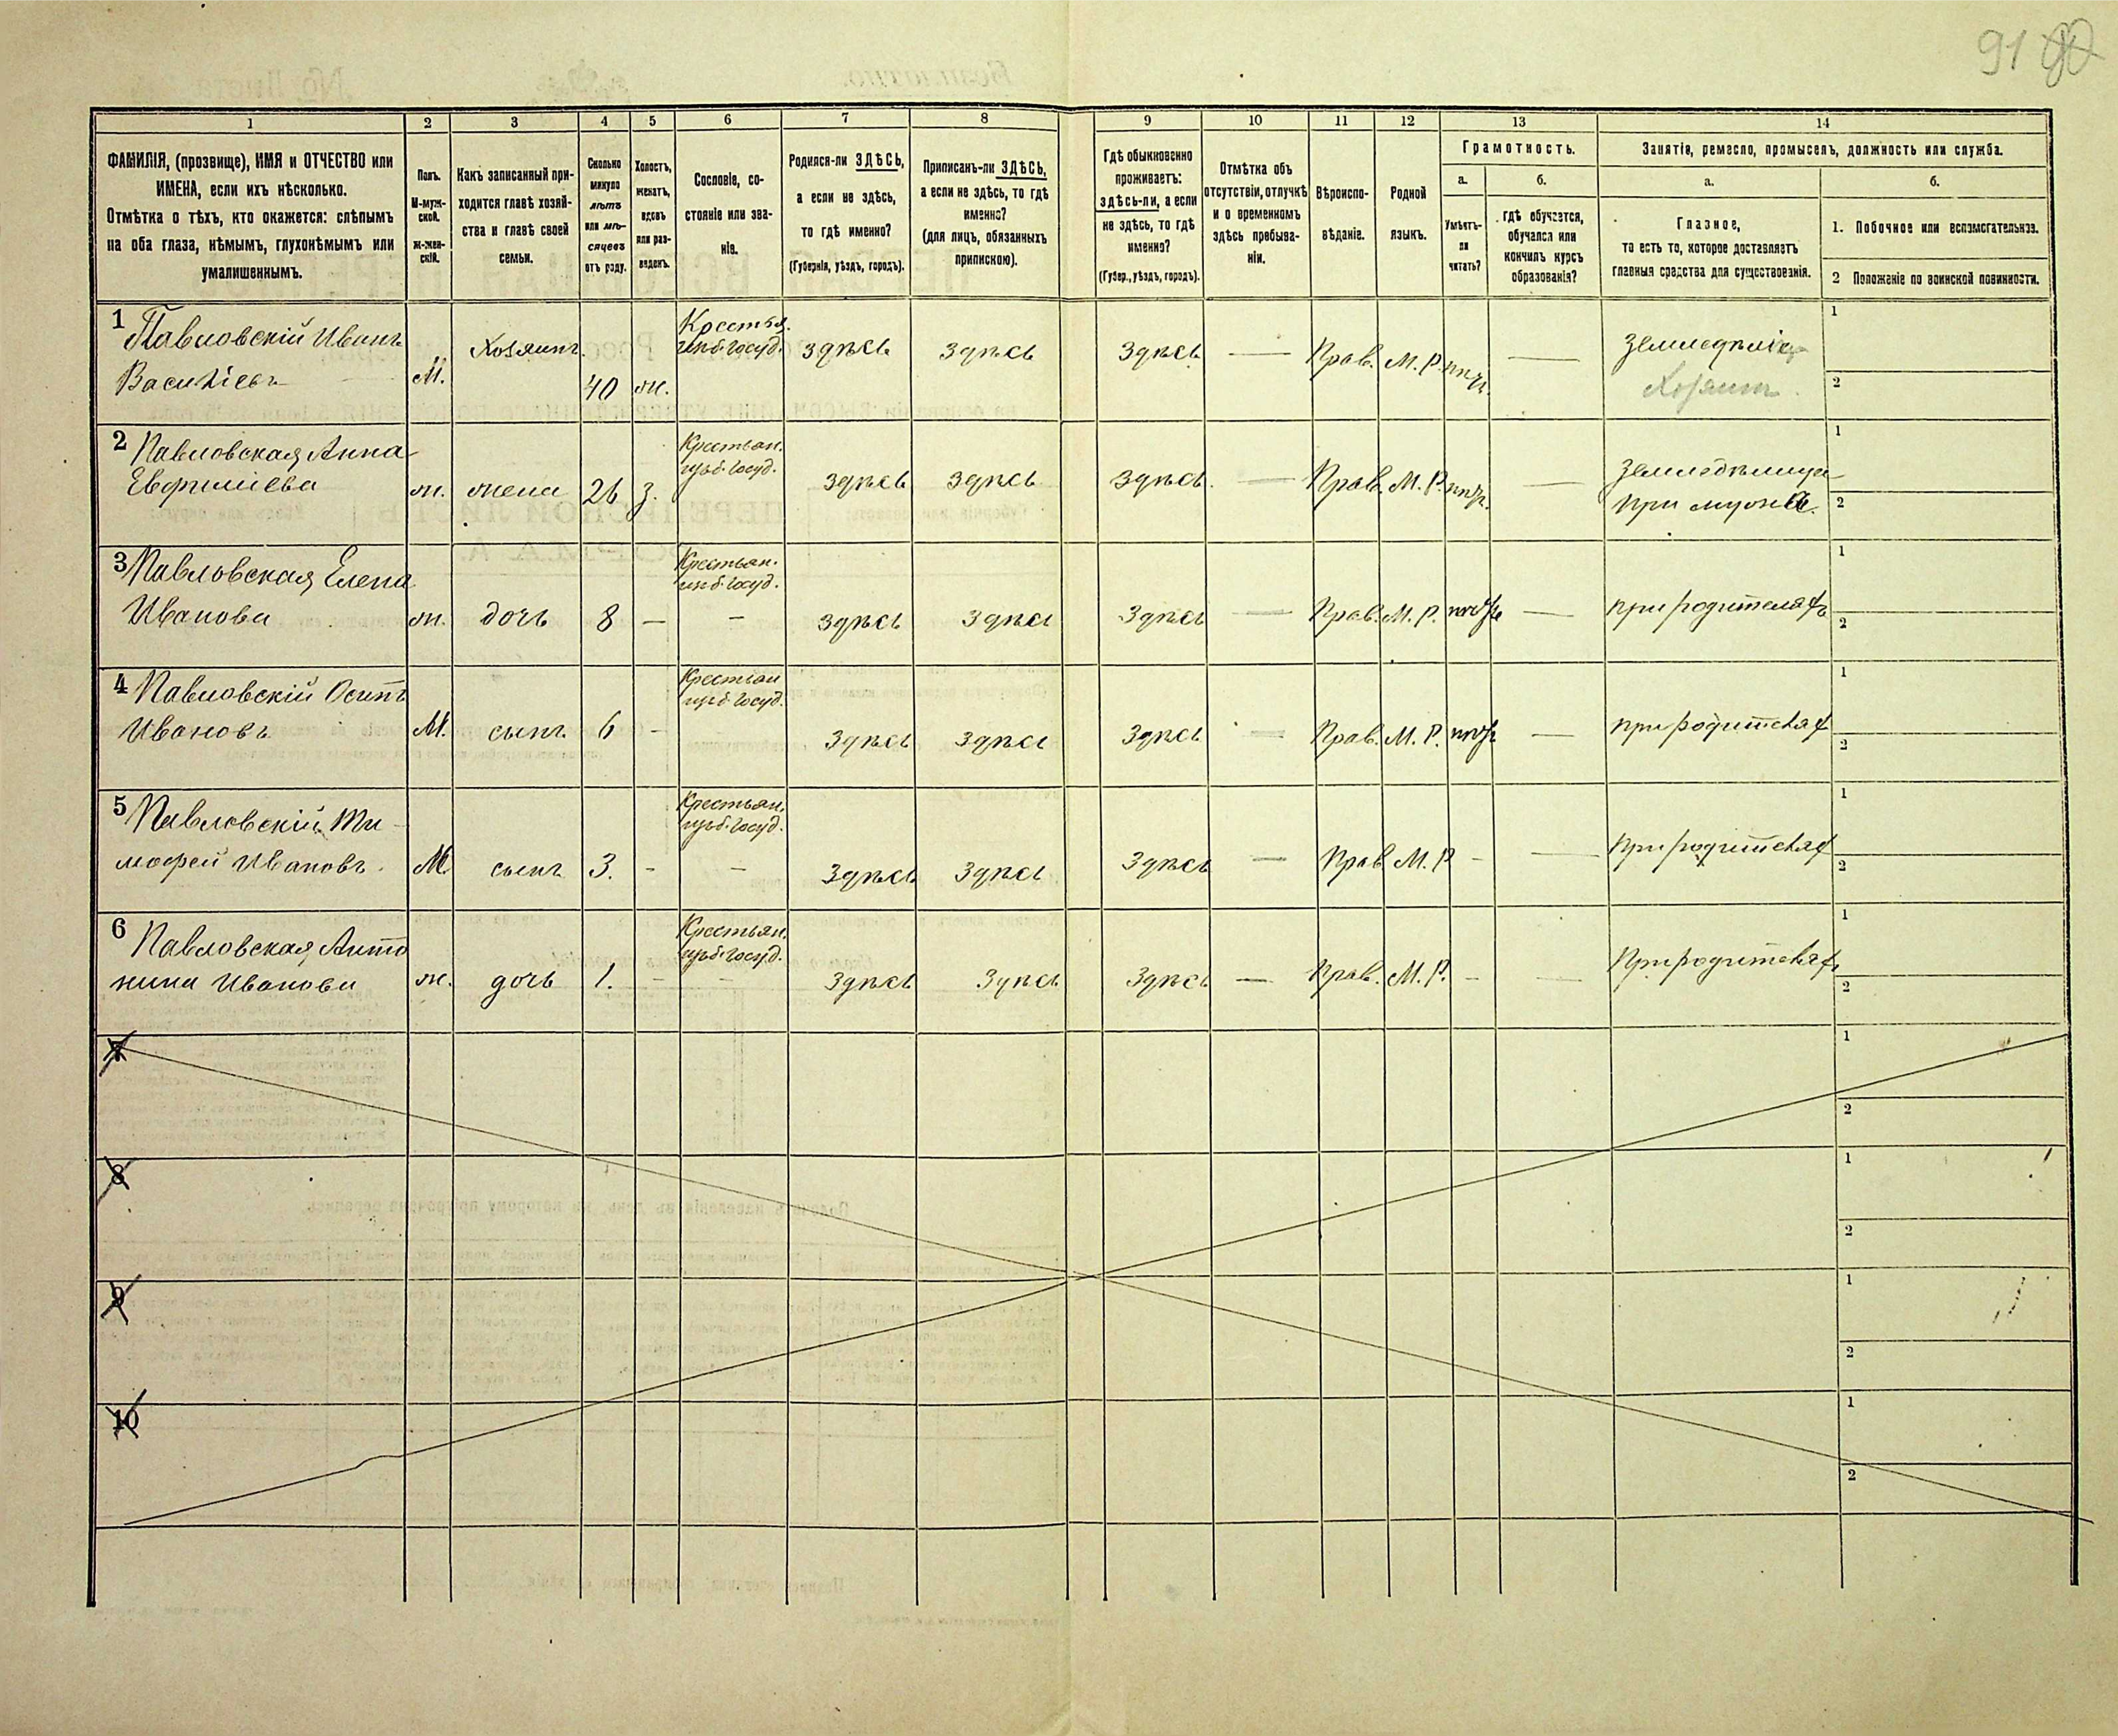 91 90
1 2 3 4 5 6 7 8 9 10 11 12 13 14
ФАМИЛІЯ, (прозвище), ИМЯ и ОТЧЕСТВО или
ИМЕНА, если ихъ нѣсколько.
Отмѣтка о тѣхъ, кто окажется: слѣпымъ
на оба глаза, нѣмымъ, глухонѣмымъ или
умалишеннымъ.
Полъ.
М-муж-
ской.
ж-жен-
скій.
Какъ записанный при-
ходится главѣ хозяй-
ства и главѣ своей
семьи.
Сколько
минуло
лѣтъ
или мѣ-
сяцевъ
отъ роду.
Холостъ,
женатъ,
вдовъ
или раз-
веденъ.
Сословіе, со-
стояніе или зва-
ніе.
Родился-ли ЗДѢСЬ,
а если не здѣсь,
то гдѣ именно?
(Губернія, уѣздъ, городъ).
Приписанъ-ли ЗДѢСЬ,
а если не здѣсь, то гдѣ
именно?
(для лицъ, обязанныхъ
припискою).
Гдѣ обыкновенно
проживаетъ:
здѣсь-ли, а если
не здѣсь, то гдѣ
именно?
(Губер., уѣздъ, городъ).
Отмѣтка объ
отсутствіи, отлучкѣ
и о временномъ
здѣсь пребыва-
ніи.
Вѣроиспо-
вѣданіе.
Родной
языкъ.
Грамотность.
а. б.
Умѣетъ-
ли
читать?
гдѣ обучается,
обучался или
кончилъ курсъ
образованія?
Занятіе, ремесло, промыселъ, должность или служба.
а. б.
Главное,
то есть то, которое доставляетъ
главныя средства для существованія.
1. Побочное или вспомогательное.
2 Положеніе по воинской повинности.
1 Павловскій Иванъ
Васильевъ М. Хозяинъ. 40 ж.
Крестья.
изъ б. госуд.
здѣсь здѣсь здѣсь — Прав. М. Р. —
земледѣлецъ
Хозяинъ.
1
2
2 Павловская Анна
ж. жена 26 з.
Крестьян.
изъ б. госуд.
здѣсь здѣсь здѣсь. — Прав. М. Р. —
земледѣлица
при мужѣ.
1
2
3 Павловская Елена
Иванова ж. дочь 8 — —
Крестьян.
изъ б. госуд.
здѣсь здѣсь здѣсь — Прав. М. Р. —
при родителяхъ
1
2
4 Павловскій Осипъ
Ивановъ М. сынъ 6 -
Крестьян
изъ б. госуд.
здѣсь здѣсь здѣсь — Прав. М. Р. —
при родителях
1
2
5 Павловскій Ти-
мофей Ивановъ. М. сынъ 3. - —
Крестьян.
изъ б. госуд.
здѣсь здѣсь здѣсь — Прав М. Р - —
при родителях
1
2
6 Павловская Анто
нина Иванова ж. дочь 1. - -
Крестьян.
изъ б. госуд.
здѣсь здѣсь здѣсь — Прав. М. Р. - —
При родителях
1
2
7
1
2
8
1
2
9
1
2
10
1
2